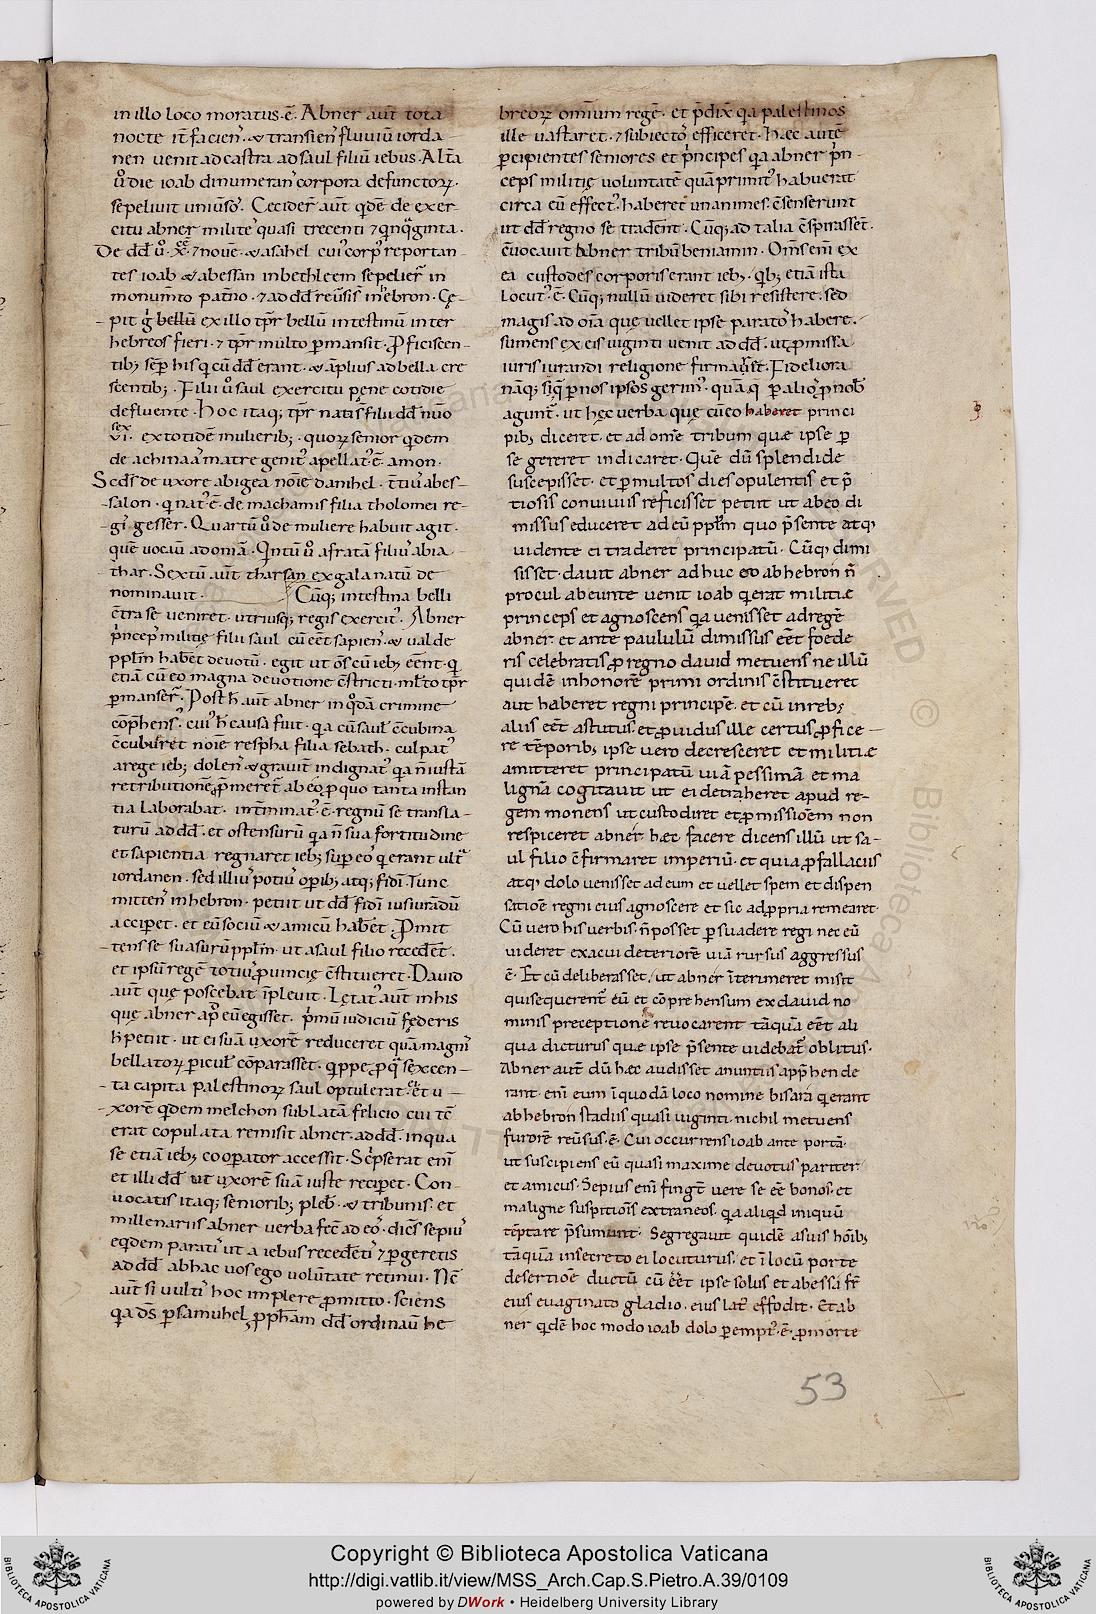 in illo loco moratus·ē· Abner aut̄ tota
nocte it̄ facien᷒· & transien᷒ fluuiū iorda
nen venit ad castra ad saul filiū iebus· Alt̄a
u᷎ die ioab dinumeran᷒ corpora defunctoꝝ·
sepeliuit uniūso᷒· Cecider̄ aut̄ qdē de exer
citu abner milite᷒ quasi trecenti ⁊ qnq̈ginta·
De dd̄ u᷎·x̊·⁊ nouē· & asahel cui᷒ corp᷒ reportan
tes ioab & abessan in bethleem sepelier̄ in
monum̄to pat̄no· ⁊ ad dd̄ reūsi s̄ inebron· Cę
pit g̊ bellū ex illo tp̄r bellū intestinū inter
hebreos fieri· ⁊ tp̄r multo ꝑmansit· Ꝓficiscen
tibꝫ sēp his q cū dd̄ erant· & āplius ad bella cre
scentibꝫ· Filii u᷎ saul exercitu pene cotidie
defluente· Hoc itaqꝫ tp̄r nati s̄ filii dd̄ nūo
sex
vi· ex totidē mulieribꝫ· quoꝝ senior qdem
de achinaa matre genit᷒ apellat᷒·ē· amon·
Scd̄s de uxore abigea noīe danihel· t̄tiu᷒ abes
salon· q nat᷒·ē· de machamis filia tholomei re
gi᷒ gesser· Quartū u᷎ de muliere habuit agit·
quē uociu᷒ adomā· Qntū u᷎ afratā filiu᷒ abia
thar· Sextū aut̄ tharsan ex gala natū de
nominauit· Cūqꝫ intestina belli
c̄tra se uenirēt utriusqꝫ regis exercit᷒· Abner
p̄ncep᷒ militię filii saul cū eēt sapien᷒ & ualde
ppl̄m habēt deuotū· egit ut ōs cū iebꝫ eēnt· q
etiā cū eo magna deuotione c̄stricti· ml̄to tp̄r
ꝑmanser̄· Post h̄ aut̄ abner in qdā crimine
cōp̄hens᷒· cui᷒ h̄ causa fuit· qa cū saul᷒ c̄cubina
c̄cuburet noīe respha filia sebath· culpat᷒
a rege iebꝫ dolen᷒ & grauit̄ indignat᷒ qa n̄ iustā
retributionē ꝓmeret̄ ab eo ꝓ quo tanta instan
tia laborabat· int̄minat᷒·ē· regnū se transla
turū ad dd̄· et ostensurū qa n̄ sua fortitudine
et sapientia regnaret iebꝫ suꝑ eo᷒ q erant ult̄
iordanen· sed illiu᷒ poti᷒ opibꝫ atqꝫ fidī· Tunc
mitten᷒ in hebron· petiit ut dd̄ fidī iusiurādū
acciꝑet· et eū sociū & amicū habēt· Ꝓmit
tens se suasurū ppl̄m· ut a saul filio recedēt·
et ipsū regē totiu᷒ ꝓuincię c̄stitueret· Dauid
aut̄ que poscebat īpleuit· Lętat᷒ aut̄ in his
quę abner ap̄ eū egisset· p̄mū iudiciū fęderis
h̄ petiit· ut ei suā uxorē reduceret quā magni᷒
bellatoꝝ ꝑicul᷒ cōparasset· qppe ꝓ q sexcen
ta capita palestinoꝝ saul optulerat· et u
xorē qdem melchon sublatā felicio cui tē
erat copulata remisit abner· ad dd̄· in qua
se etiā iebꝫ cooꝑator accessit· Sc̄pserat enī
et illi dd̄ ut uxorē suā iuste reciꝑet· Con
uocatis itaqꝫ senioribꝫ pleb᷒· & tribunis· et
millenariis abner uerba fec̄ ad eo᷒· dicēs sepiu᷒
eqdem parati᷒ ut a iebus recedēti᷒ ⁊ ꝑgeretis
ad dd̄ ab hac uos ego uolūtate retinui· Nc̄
aut̄ si uulti᷒ hoc implere ꝓmitto· sciens
qa ds̄ ꝑ samuhel ꝓpham dd̄ ordinauit he
breoꝝ omnium regē· et p̄dix̄ qa palestinos
ille uastaret· ⁊ subiecto᷒ efficeret· Hæc autē
ꝑcipientes seniores et p̄ncipes qa abner p̄n
ceps militię uoluntatē quā primit᷒ habuerat
circa eū effect᷒· haberet unanimes· c̄senserunt
ut dd̄ regno se tradēnt· Cūqꝫ ad talia c̄spirassēt·
c̄uocauit abner tribū beniamin· Om̄s enī ex
ea custodes corporis erant iebꝫ· qbꝫ etiā ista
locut᷒·ē· Cūqꝫ nullū uideret sibi resistere· sed
magis ad oīa quę uellet ipse parato᷒ habere·
sumens ex eis uiginti uenit ad dd̄· ut ꝓmissa
iuris iurandi religione firmasset· Fideliora
nāqꝫ sīq̄ ꝑ nos ipsos gerim᷒· quā q̄ ꝑ alio᷒ ꝓ nob᷒
agunt᷒· ut hęc uerba quę cū eo haberet princi
pibꝫ diceret· et ad omīe tribum quæ ipse ꝑ
se gereret indicaret· Quē dū splendide
suscepisset· et ꝑ multos dies opulentis et p̄
tiosis conuiuiis reficisset petiit ut ab eo di
missus educeret ad eū ppl̄m quo p̄sente atqꝫ
uidente ei traderet principatū· Cūqꝫ dimi
sisset dauit abner adhuc eo ab hebron n̄
procul abeunte uenit ioab q erat militiæ
princeps et agnoscens qa uenisset ad regē
abner et ante paululū dimissus eēt foede
ris celebratis ꝓ regno dauid metuens ne illū
quidē in honorē primi ordinis c̄stitueret
aut haberet regni principē· et cū in rebꝫ
aliis eēt astutus· et ꝓuidus ille certus ꝓfice
re tēporibꝫ ipse uero decresceret et militiæ
amitteret principatū uiā pessimā et ma
lignā cogitauit ut ei detraheret apud re
gem monens ut custodiret et ꝓmissioēm non
respiceret abner hæc facere dicens illū ut sa
ul filio c̄firmaret imperiū· et quia ꝓ fallaciis
atqꝫ dolo uenisset ad eum et uellet spem et dispen
satioē regni eius agnoscere et sic ad ꝓpria remearet·
Cū uero his uerbis n̄ posset ꝑsuadere regi nec eū
uideret exacui deteriorē uiā rursus aggressus
ē· Et cū deliberasset· ut abner īterimeret misit
qui sequerent̄ eū et cōprehensum ex dauid no
minis preceptionē reuocarent tāquā eēt ali
qua dicturus quæ ipse p̄sente uidebat̄ oblitus·
Abner aut̄ dū hæc audisset a nuntiis app̄hende
rant enī eum ī quodā loco nomine bisara q erant
ab hebron stadiis quasi uiginti· nichil metuens
furorē reūsus·ē· Cui occurrens ioab ante portā·
ut suscipiens eū quasi maxime deuotus pariter
et amicus· Sepius enī fingt̄ uere se eē bonos· et
maligne suspitiōis extraneos· qa aliqd iniquū
tēptare p̄sumunt· Segregauit quidē a suis hōibꝫ
tāquā in secreto ei locuturus· et ī locū porte
desertioē ductū cū eēt ipse solus et abessa fr̄
eius euaginato gladio· eius lat᷒ effodit· Et ab
ner qdē hoc modo ioab dolo ꝑempt᷒·ē· ꝓ morte
53
Copyright © Biblioteca Apostolica Vaticana
http://digi.vatlib.it/view/MSS_Arch.Cap.S.Pietro.A.39/0109
powered by DWork • Heidelberg University Library